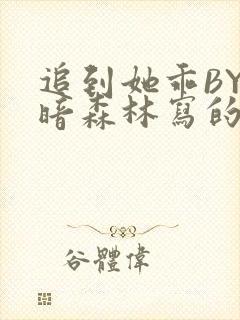 追到她乖BY
暗森林寫的
谷體偉